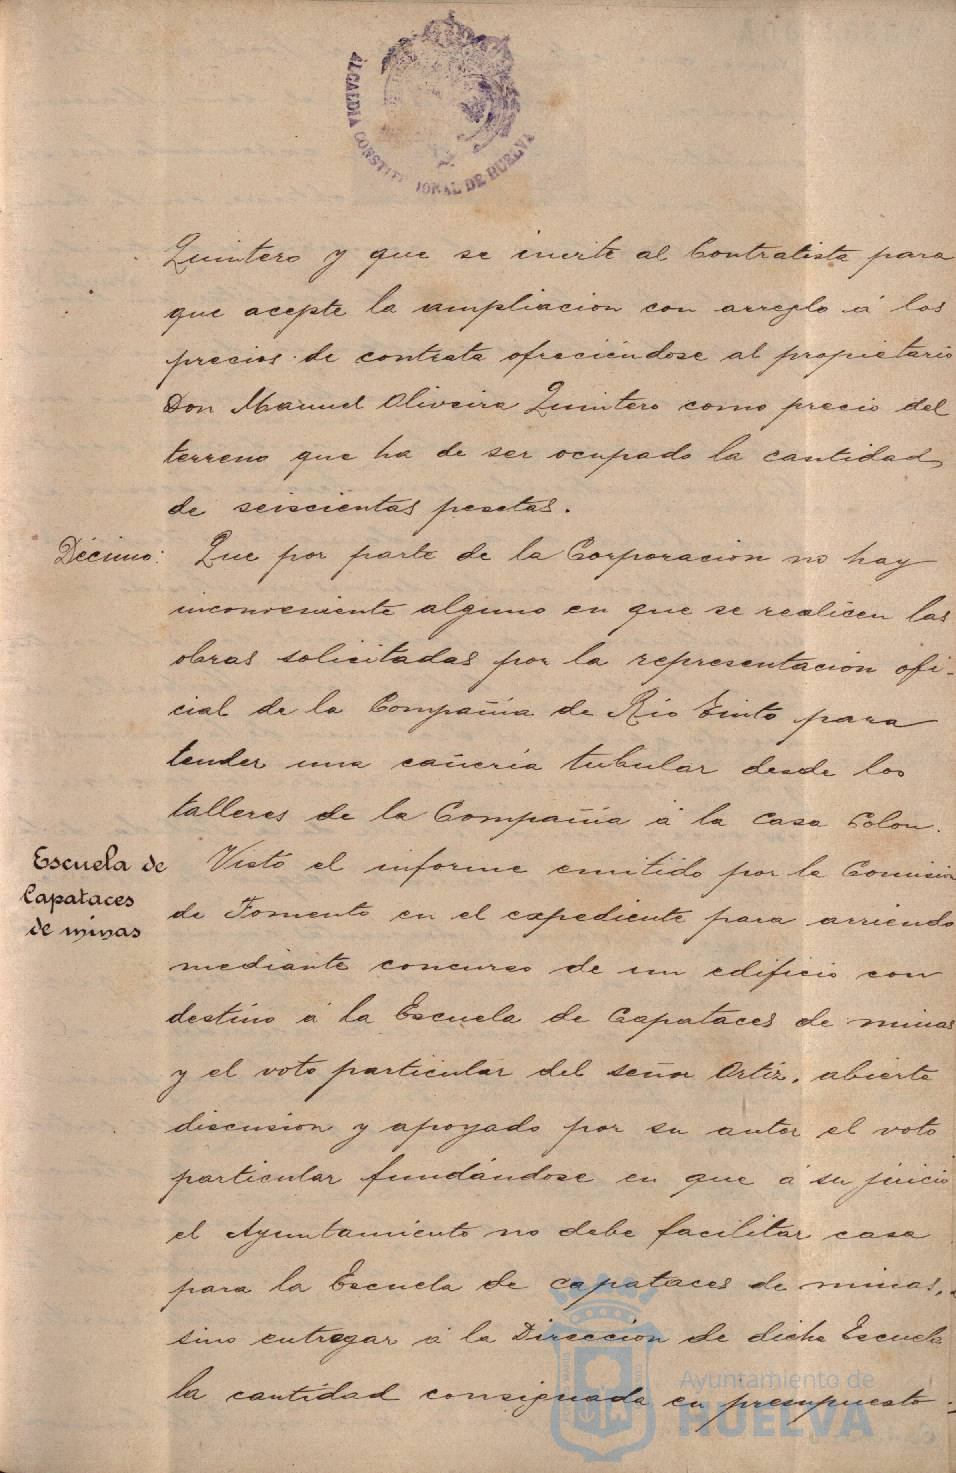 ALCALDIA CONSTITUCIONAL DE HUELVA
Quintero y que se invite al Contratista para
que acepte la ampliacion con arreglo á los
precios de contrata ofreciéndose al propietario
Don Manuel Oliveira Quintero como precio del
terreno que ha de ser ocupado la cantidad
de seiscientas pesetas.
Décimo: Que por parte de la Corporacion no hay
inconveniente alguno en que se realicen las
obras solicitadas por la representacion ofi-
cial de la Compañia de Rio Tinto para
tender una cañeria tubular desde los
talleres de la Compañia á la Casa Colon.
Escuela de
Capataces
de minas
Visto el informe emitido por la Comision
de Fomento en el expediente para arriendo
mediante concurso de un edificio con
destino á la Escuela de Capataces de minas
y el voto particular del señor Ortiz, abierta
discusion y apoyado por su autor el voto
particular fundándose en que á su juicio
el Ayuntamiento no debe facilitar casa
para la Escuela de capataces de minas,
sino entregar á la Direccion de dicha Escuela
la cantidad consignada en presupuesto
Ayuntamiento de
HUELVA